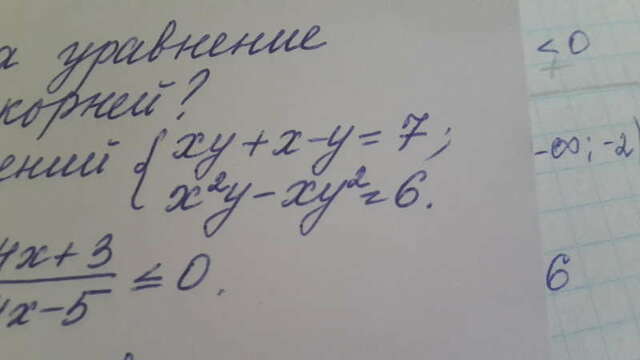 уравнение
корней?
{ xy + x - y = 7;
x²y - xy² = 6.
4x + 3
/ 4x - 5 ≤ 0.
< 0
-∞; -2)
6